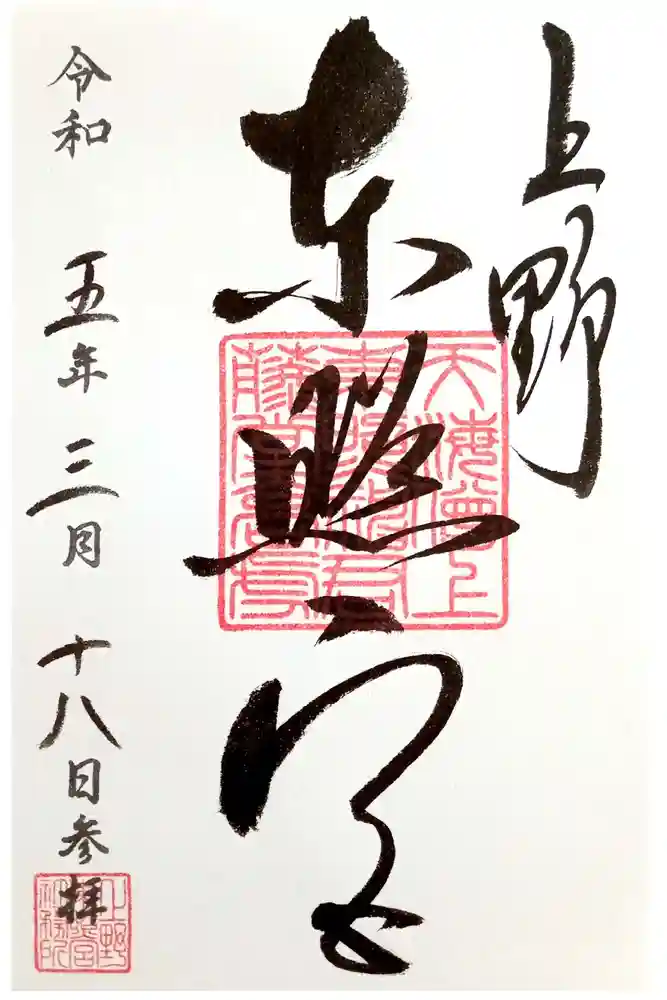 上野
東照宮
天海僧上
東照権君
藤堂高虎
令和五年三月十八日参拝
上野
東照宮
社務所